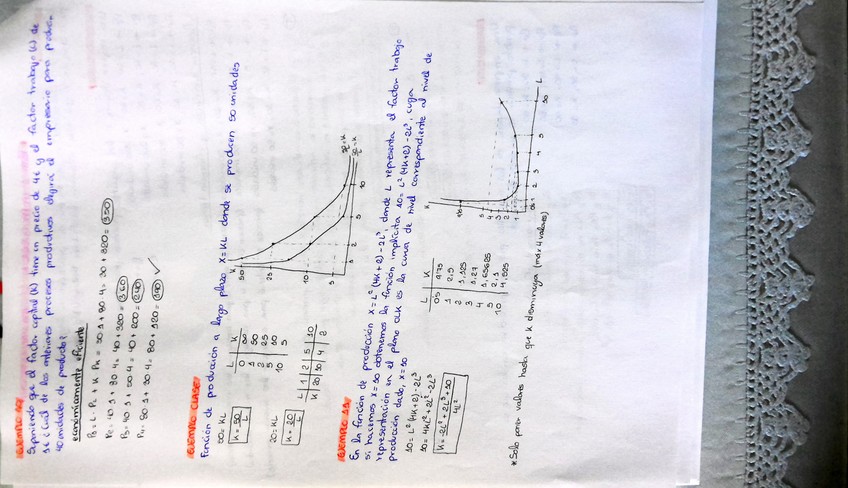 EJEMPLO 10
Suponiendo que el factor capital (K) tiene un precio de 4€ y el factor trabajo (L) de
1€ ¿Cual de los anteriores procesos productivos elegirá el empresario para producir
40 unidades de producto?
económicamente eficiente
= 40 + 320 = 360
= 40 + 200 = 240
EJEMPLO CLASE
Función de producción a largo plazo X = KL donde se producen 50 unidades
L K
0 ∞
1 50
2 25
5 10
10 5
K = 50/L
20 = KL
K = 20/L
L 1 2 5 10
K 20 10 4 2
K
50
25
10
5
1 2 5 10
EJEMPLO 11
En la función de producción X = L² (4K+2) - 2L³, donde L representa el factor trabajo
si hacemos X = 10 obtenemos la función implícita 10 = L² (4K+2) - 2L³, cuya
representación en el plano OLK es la curva de nivel correspondiente al nivel de
producción dado, X = 10
10 = L² (4K+2) - 2L³
10 = 4KL² + 2L² - 2L³
K = 2L³ - 2L² + 10 / 4L²
L K
0'5 9'75
1 2'5
3 1'27
4 1'65625
5 2'1
10 4'525
K
5
4
3
2
1
1 2 3 4 5 10 L
*Solo pone valores hasta que K disminuya (máx 4 valores)